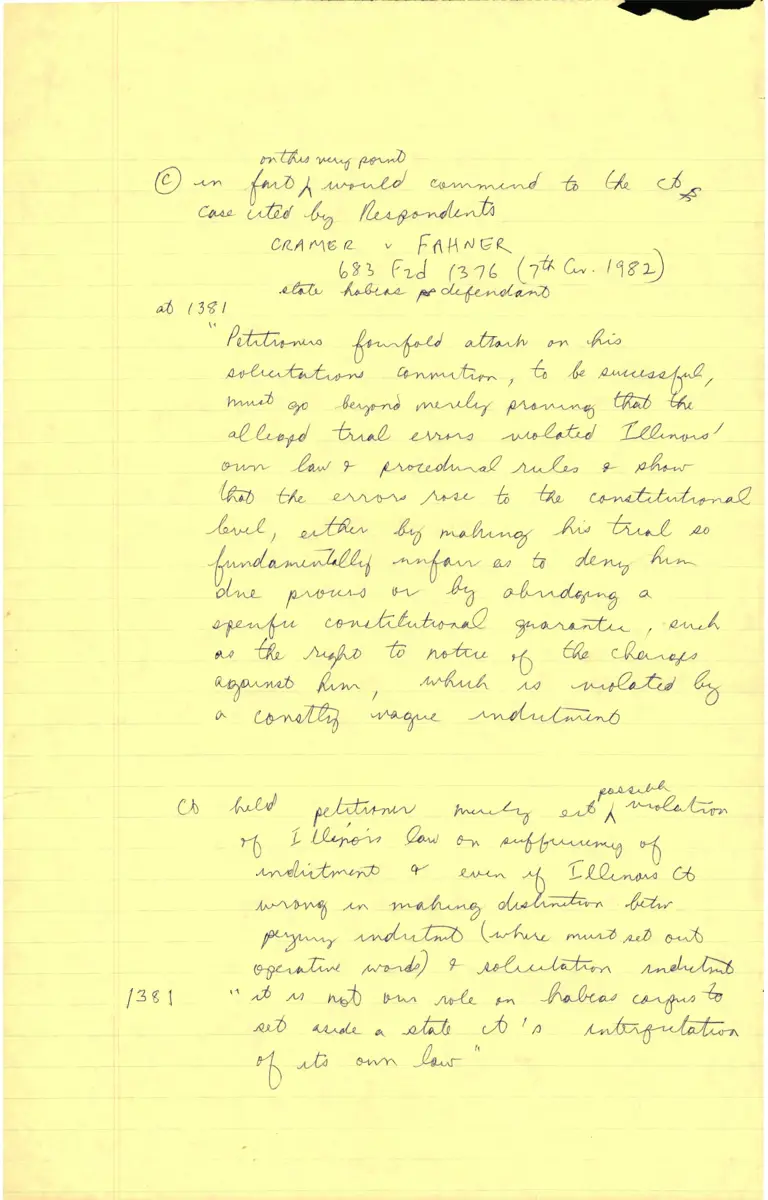 on this very point
(C) in fact ^ would commend to the ct
case cited by Respondents
CRAMER v FAHNER
683 F2d 1376 (7th Cir. 1982)
state habeas defendant
at 1381
"Petitioners fourfold attack on his
solicitations conviction, to be successful,
must go beyond merely proving that the
alleged trial errors violated Illinois'
own law & procedural rules & show
that the errors rose to the constitutional
level, either by making his trial so
fundamentally unfair as to deny him
due process or by abridging a
specific constitutional guarantee, such
as the right to notice of the charges
against him, which is violated by
a constly vague indictment
possible
Ct held petitioner merely est ^ violation
of Illinois law on sufficiency of
indictment & even if Illinois Ct
wrong in making distinction betw
perjury indictmt (where must set out
operative words) & solicitation indictmt
1381 "it is not our role on habeas corpus to
set aside a state ct's interpretation
of its own law"